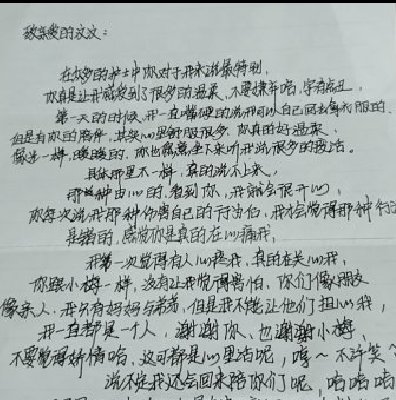 致亲爱的汶汶：
在众多的护士中你对于我来说最特别，
你真是让我感受到了很多的温柔，不要嫌弃哈，字有点丑。
第一天的时候，我一直嘴硬的说我可以自己回去拿衣服的，
但是有你的陪伴，其实心里舒服很多，你真的好温柔，
像光一样，暖暖的，你也愿意坐下来听我说很多的废话。
具体那里不一样，真的说不上来。
那种由心的，看到你，我就会很开心，
你每次说我那种伤害自己的行为后，我才会觉得那种行
是错的，感觉你是真的在心痛我，
我第一次觉得有人心疼我，真的在关心我，
你跟小梅一样，没有让我觉得害怕，你们像朋友
像亲人，我只有妈妈与弟弟，但是我不能让他们担心我，
我一直都是一个人，谢谢你、也谢谢小梅
不要觉得矫情哈，这可都是心里话呢，哼～不许笑
说不定我还会回来陪你们呢，哈哈哈